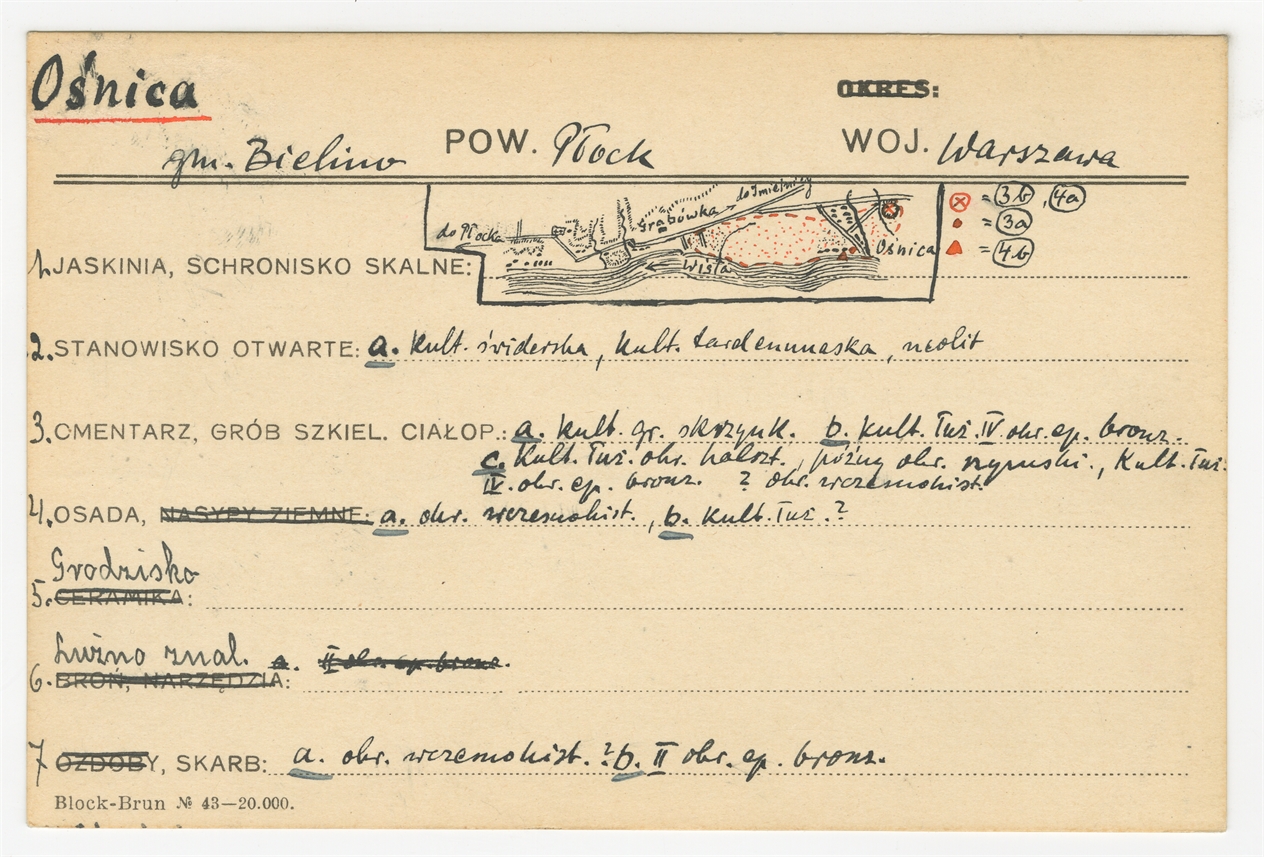 Ośnica
OKRES:
gm. Bielino POW. Płock WOJ. Warszawa
do Imielnicy
Grabówka
do Płocka
Wisła
Ośnica
= 3b, 4a
= 3a
= 4b
1. JASKINIA, SCHRONISKO SKALNE:
2. STANOWISKO OTWARTE: a. Kult. świderska, kult. tardenuaska, neolit
3. CMENTARZ, GRÓB SZKIEL. CIAŁOP.: a. kult. gr. skrzynk. b. kult. łuż. IV okr. ep. bronz.
c. Kult. łuż. okr. halszt., późny okr. rzymski., Kult. łuż.
IV. okr. ep. bronz. ? okr. wczesnohist.
4. OSADA, NASYPY ZIEMNE: a. okr. wczesnohist., b. kult. łuż.?
Grodzisko
5. CERAMIKA:
Luźno znal. a. II okr. ep. bronz.
6. BROŃ, NARZĘDZIA:
7 OZDOBY, SKARB: a. okr. wczesnohist. ? b. II okr. ep. bronz.
Block-Brun № 43—20.000.